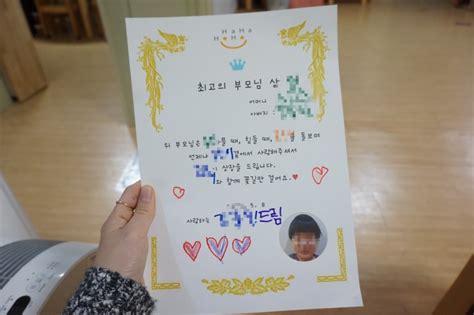 HaHa
HoHo
최고의 부모님 상
어머니
아버지
위 부모님은 를 때, 힘들 때, 를 돌보며
언제나 곁에서 사랑해주셔서
이 상장을 드립니다.
와 함께 꽃길만 걸어요.
5. 8
사랑하는 드림